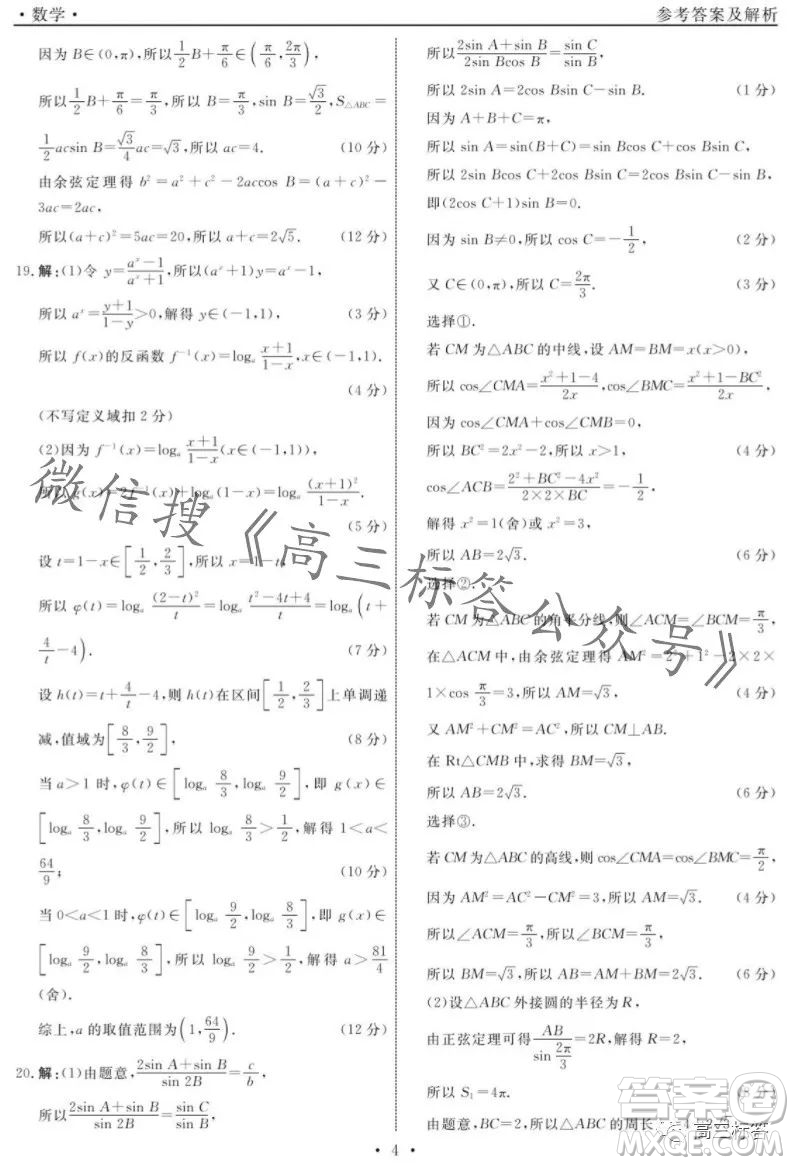 ·数学·
参考答案及解析
因为 B∈(0,π),所以 1/2 B+π/6∈(π/6, 2π/3),
所以 1/2 B+π/6=π/3,所以 B=π/3,sin B=√3/2,S△ABC=
1/2 acsin B=√3/4 ac=√3,所以 ac=4. (10 分)
由余弦定理得 b²=a²+c²-2accos B=(a+c)²-
3ac=2ac,
所以(a+c)²=5ac=20,所以 a+c=2√5. (12 分)
19.解:(1)令 y=(aˣ-1)/(aˣ+1),所以(aˣ+1)y=aˣ-1,
所以 aˣ=(y+1)/(1-y)>0,解得 y∈(-1,1), (3 分)
所以 f(x)的反函数 f⁻¹(x)=logₐ (x+1)/(1-x),x∈(-1,1).
(4 分)
(不写定义域扣 2 分)
(2)因为 f⁻¹(x)=logₐ (x+1)/(1-x)(x∈(-1,1)),
所以 g(x)=2f⁻¹(x)+logₐ(1-x)=logₐ (x+1)²/(1-x).
(5 分)
设 t=1-x∈[1/2, 2/3],所以 x=1-t,
所以 φ(t)=logₐ (2-t)²/t=logₐ (t²-4t+4)/t=logₐ(t+
4/t-4). (7 分)
设 h(t)=t+4/t-4,则 h(t)在区间[1/2, 2/3]上单调递
减,值域为[8/3, 9/2], (8 分)
当 a>1 时,φ(t)∈[logₐ 8/3, logₐ 9/2],即 g(x)∈
[logₐ 8/3, logₐ 9/2],所以 logₐ 8/3>1/2,解得 1<a<
64/9; (10 分)
当 0<a<1 时,φ(t)∈[logₐ 9/2, logₐ 8/3],即 g(x)∈
[logₐ 9/2, logₐ 8/3],所以 logₐ 9/2>1/2,解得 a>81/4
(舍).
综上,a 的取值范围为(1, 64/9). (12 分)
20.解:(1)由题意,(2sin A+sin B)/sin 2B=c/b,
所以(2sin A+sin B)/sin 2B=sin C/sin B,
所以(2sin A+sin B)/(2sin Bcos B)=sin C/sin B,
所以 2sin A=2cos Bsin C-sin B. (1 分)
因为 A+B+C=π,
所以 sin A=sin(B+C)=sin Bcos C+cos Bsin C,
所以 2sin Bcos C+2cos Bsin C=2cos Bsin C-sin B,
即(2cos C+1)sin B=0.
因为 sin B≠0,所以 cos C=-1/2, (2 分)
又 C∈(0,π),所以 C=2π/3. (3 分)
选择①.
若 CM 为△ABC 的中线,设 AM=BM=x(x>0),
所以 cos∠CMA=(x²+1-4)/2x,cos∠BMC=(x²+1-BC²)/2x.
因为 cos∠CMA+cos∠CMB=0,
所以 BC²=2x²-2,所以 x>1, (4 分)
cos∠ACB=(2²+BC²-4x²)/(2×2×BC)=-1/2,
解得 x²=1(舍)或 x²=3,
所以 AB=2√3. (6 分)
选择②.
若 CM 为△ABC 的角平分线,则∠ACM=∠BCM=π/3,
在△ACM 中,由余弦定理得 AM²=2²+1²-2×2×
1×cos π/3=3,所以 AM=√3, (4 分)
又 AM²+CM²=AC²,所以 CM⊥AB.
在 Rt△CMB 中,求得 BM=√3,
所以 AB=2√3. (6 分)
选择③.
若 CM 为△ABC 的高线,则 cos∠CMA=cos∠BMC=π/2,
因为 AM²=AC²-CM=3,所以 AM=√3. (4 分)
所以∠ACM=π/3,所以∠BCM=π/3,
所以 BM=√3,所以 AB=AM+BM=2√3. (6 分)
(2)设△ABC 外接圆的半径为 R,
由正弦定理可得 AB/sin 2π/3=2R,解得 R=2,
所以 S₁=4π. (8 分)
由题意,BC=2,所以△ABC 的周长
·4·
微信搜《高三标答公众号》
答案圈
MXQE.COM
高三标答